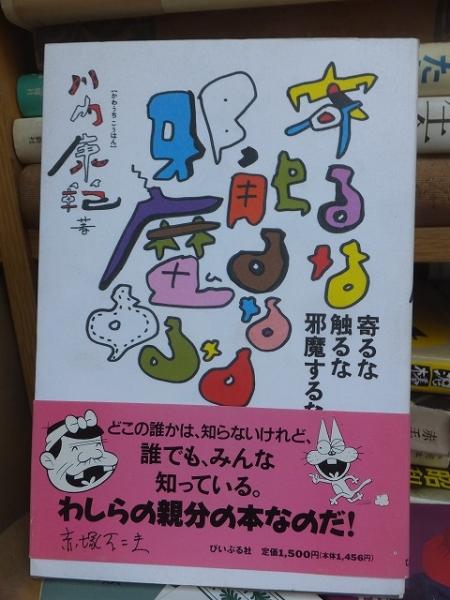 寄るな
触るな
邪魔するな
川内康範 著
[かわうちこうはん]
寄るな
触るな
邪魔するな
どこの誰かは、知らないけれど、
誰でも、みんな
知っている。
わしらの親分の本なのだ!
赤塚不二夫
ぴいぷる社 定価1,500円(本体1,456円)